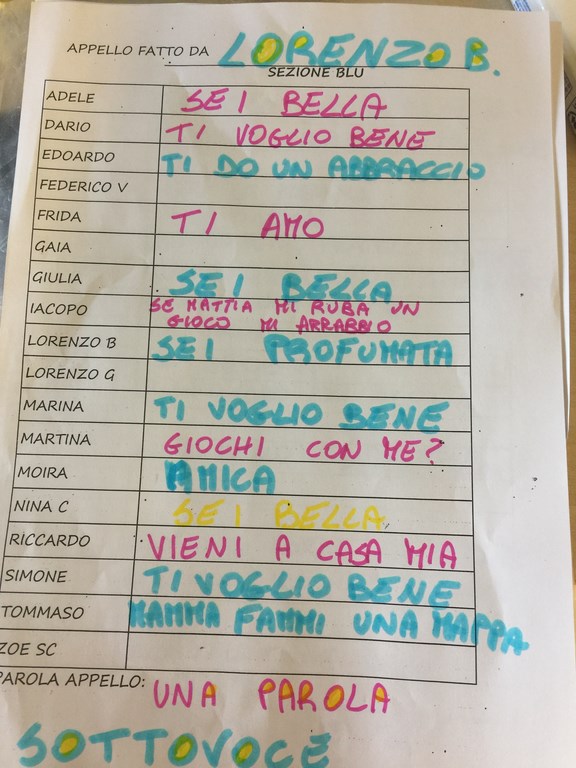 APPELLO FATTO DA LORENZO B.
SEZIONE BLU
ADELE SEI BELLA
DARIO TI VOGLIO BENE
EDOARDO TI DO UN ABBRACCIO
FEDERICO V
FRIDA TI AMO
GAIA
GIULIA SEI BELLA
IACOPO SE MATTIA MI RUBA UN
GIOCO MI ARRABBIO
LORENZO B SEI PROFUMATA
LORENZO G
MARINA TI VOGLIO BENE
MARTINA GIOCHI CON ME?
MOIRA AMICA
NINA C SEI BELLA
RICCARDO VIENI A CASA MIA
SIMONE TI VOGLIO BENE
TOMMASO MAMMA FAMMI UNA MAPPA
ZOE SC
PAROLA APPELLO: UNA PAROLA
SOTTOVOCE